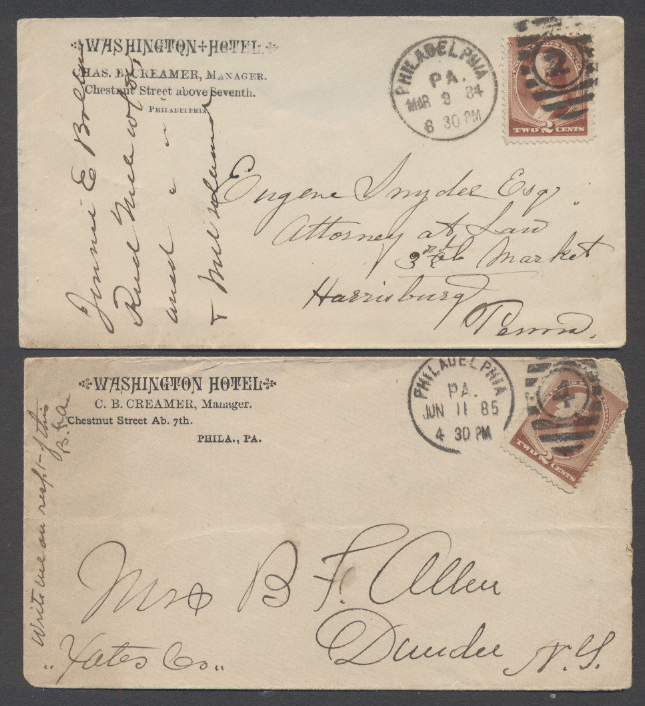 WASHINGTON HOTEL
CHAS. B. CREAMER, MANAGER.
Chestnut Street above Seventh.
PHILADELPHIA
PHILADELPHIA
PA.
MAR 9 84
6 30 PM
2
TWO 2 CENTS
Jennie E
and
Eugene Snyder Esq.
Attorney at Law
3rd & Market
Harrisburg
Penna.
WASHINGTON HOTEL
C. B. CREAMER, Manager.
Chestnut Street Ab. 7th.
PHILA., PA.
PHILADELPHIA
PA.
JUN 11 85
4 30 PM
4
TWO 2 CENTS
Write me on recpt - of this
Mrs B F. Allen
Dundee N.Y.
"Yates Co"